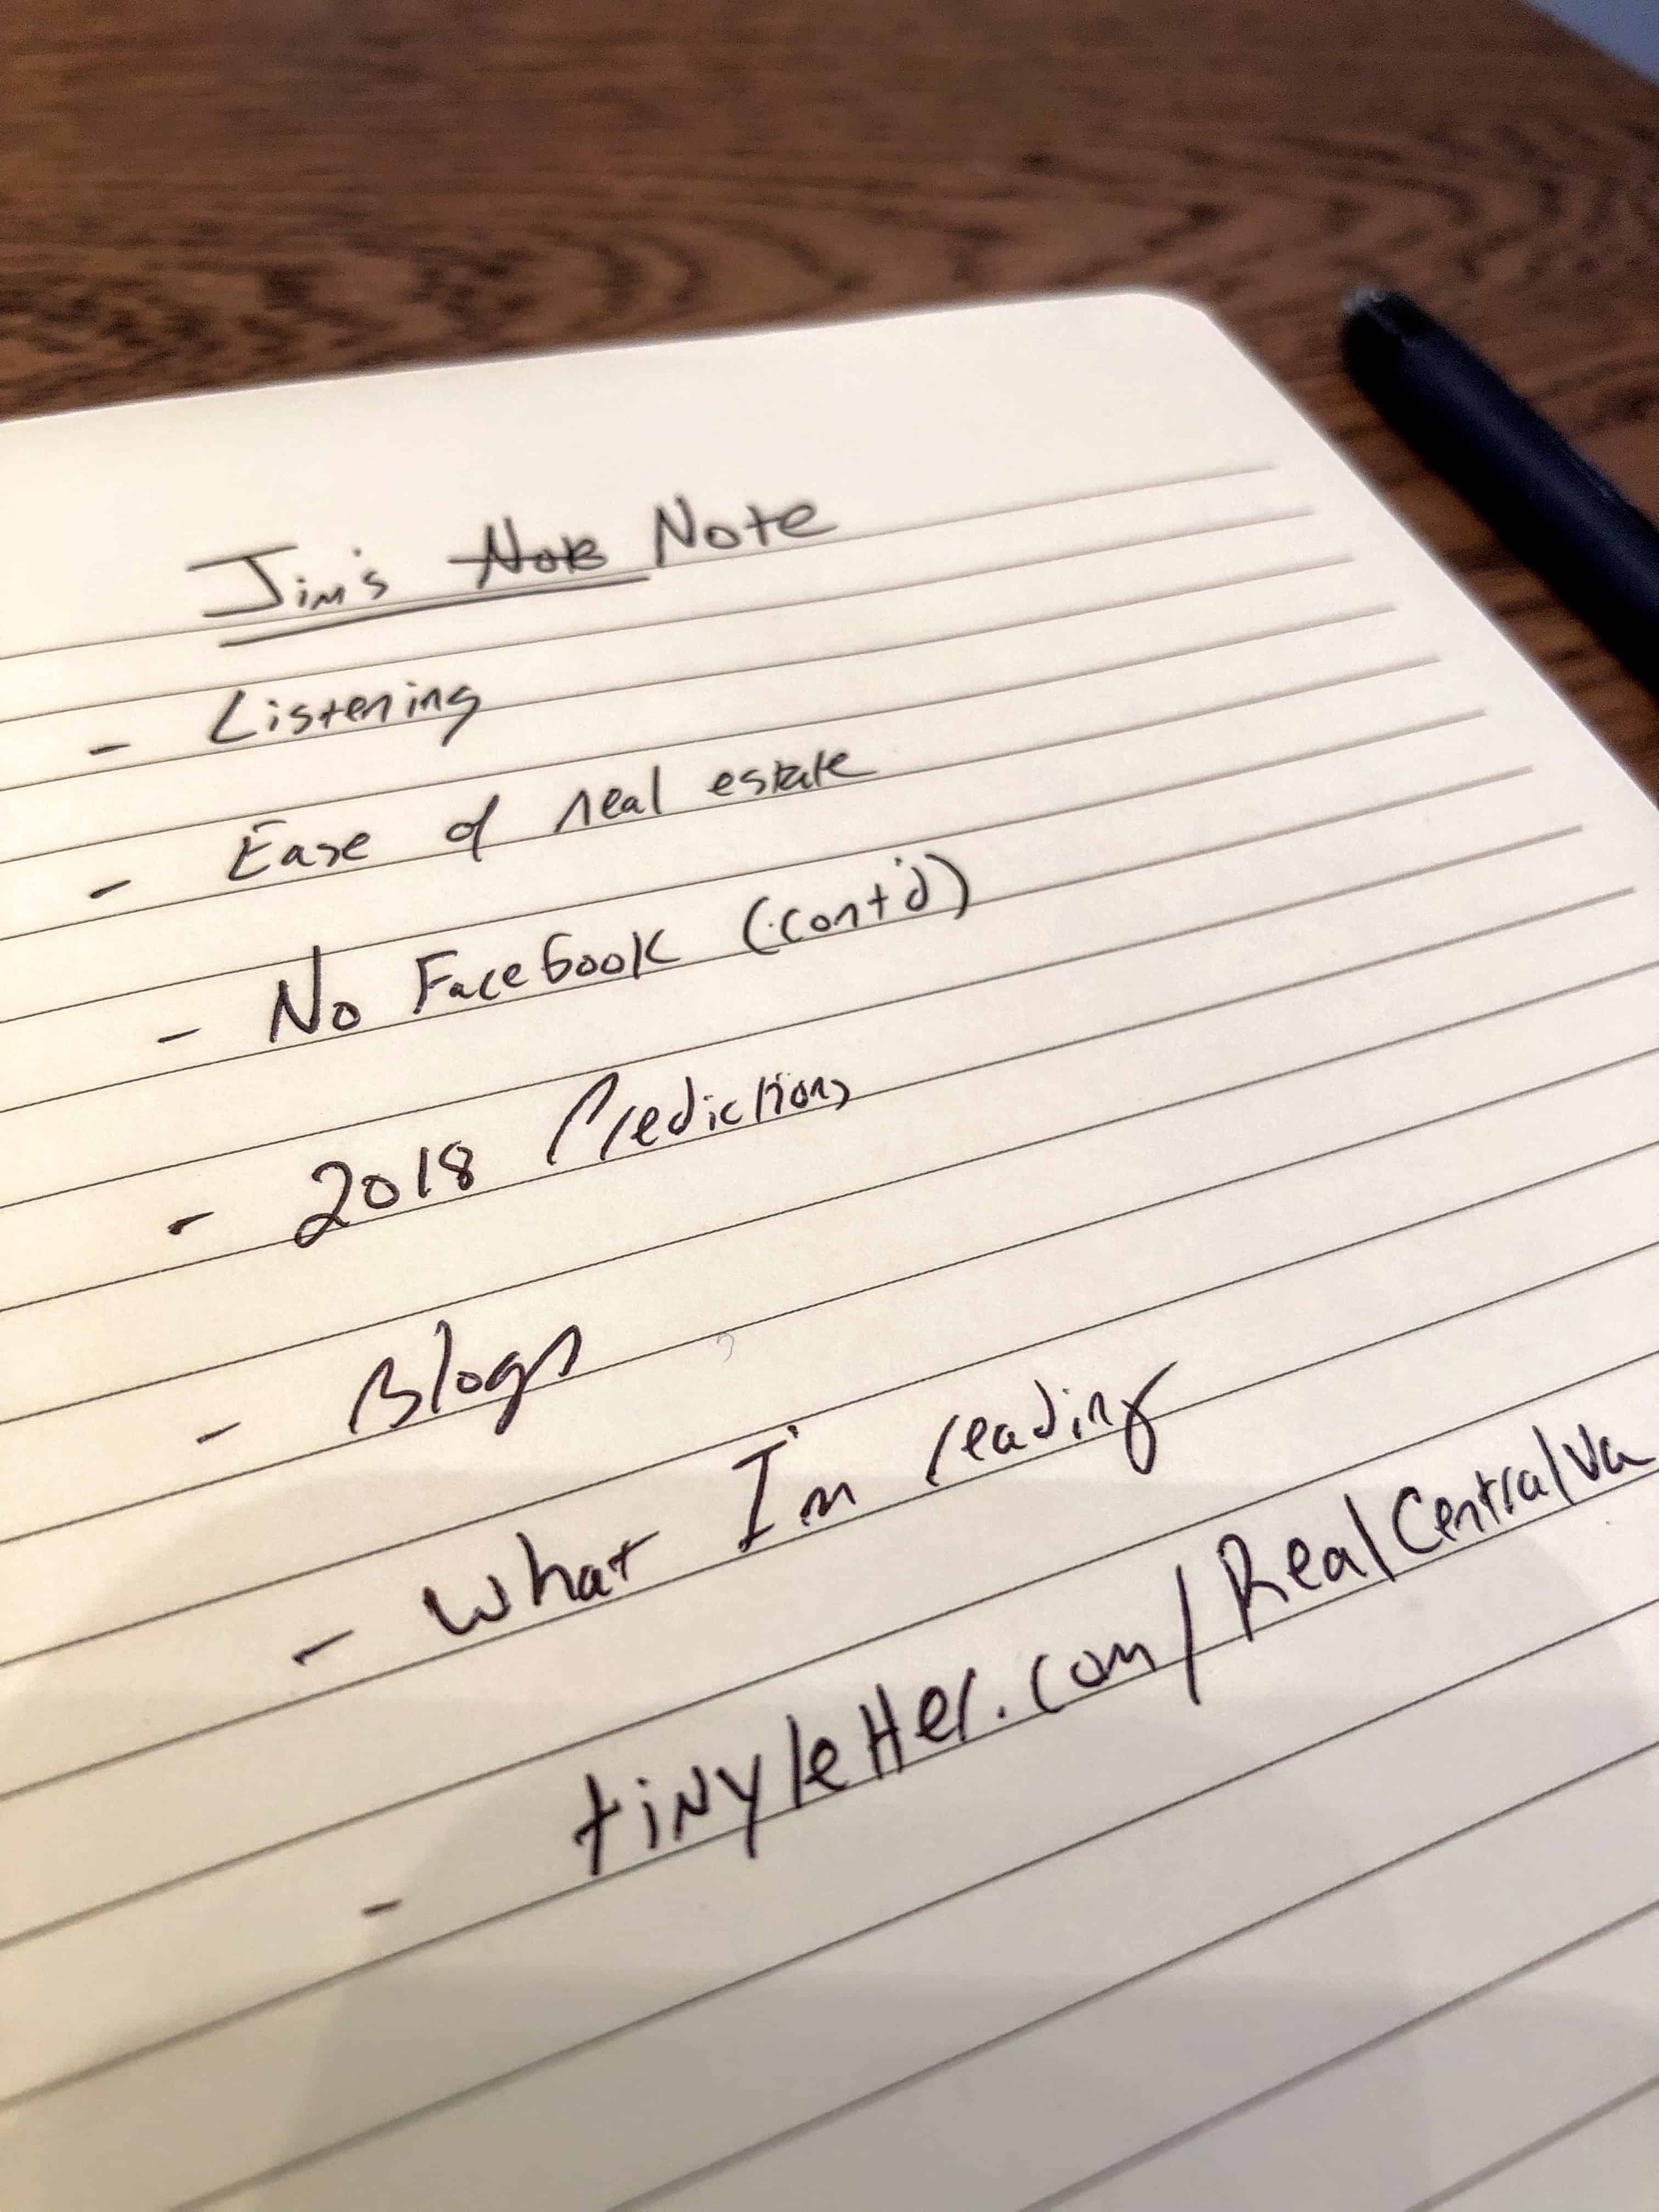 Jim's Note Note
- Listening
- Ease of real estate
- No Facebook (cont'd)
- 2018 Predictions
- Blogs
- What I'm reading
- tinyletter.com/RealCentralVa